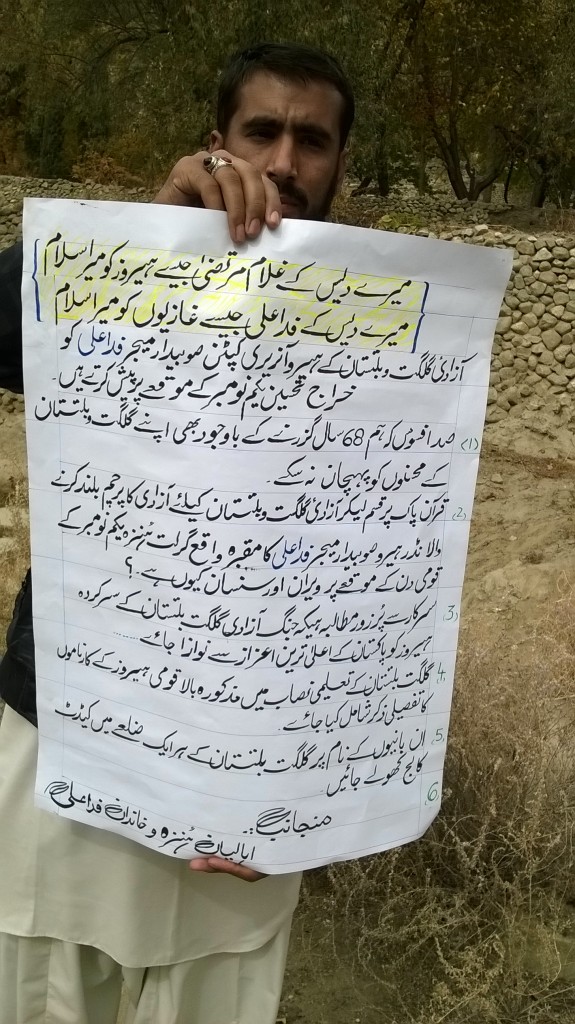 میرے دیس کے غلام مرتضیٰ جیسے ہیروز کو میرا سلام
میرے دیس کے فدا علی جیسے غازیوں کو میرا سلام
آزادیٔ گلگت و بلتستان کے ہیرو آنریری کیپٹن صوبیدار میجر فدا علی کو
خراج تحسین یکم نومبر کے موقعے پر پیش کرتے ہیں۔
(1) صد افسوس کہ ہم 68 سال گزرنے کے باوجود بھی اپنے گلگت و بلتستان
کے محسنوں کو پہچان نہ سکے۔
(2) قرآن پاک پر قسم لیکر آزادیٔ گلگت و بلتستان کیلئے آزادی کا پرچم بلند کرنے
والا نڈر ہیرو صوبیدار میجر فدا علی کا مقبرہ واقع گرلت ہُنزہ یکم نومبر کے
قومی دن کے موقعے پر ویران اور سنسان کیوں ہے۔؟
3. سرکار سے پُر زور مطالبہ ہیکہ جنگ آزادی گلگت بلتستان کے سرکردہ
ہیروز کو پاکستان کے اعلیٰ ترین اعزاز سے نوازا جائے.......
4. گلگت بلتستان کے تعلیمی نصاب میں مذکورہ بالا قومی ہیروز کے کارناموں
کا تفصیلی ذکر شامل کیا جائے۔
5. ان بانیوں کے نام پر گلگت بلتستان کے ہر ایک ضلعے میں کیڈٹ
کالج کھولے جائیں۔
6. منجانب:۔
اہالیان ہُنزہ و خاندان فدا علی